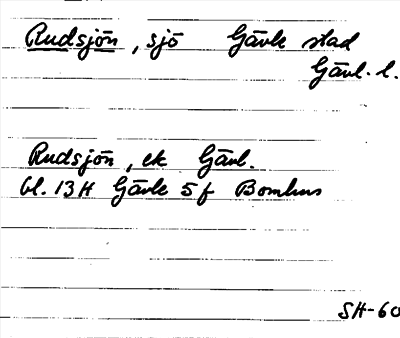 Rudsjön, sjö Gävle stad
Gävl. l.
Rudsjön, ek Gävl.
bl. 13H Gävle 5f Bomhus
SH-60